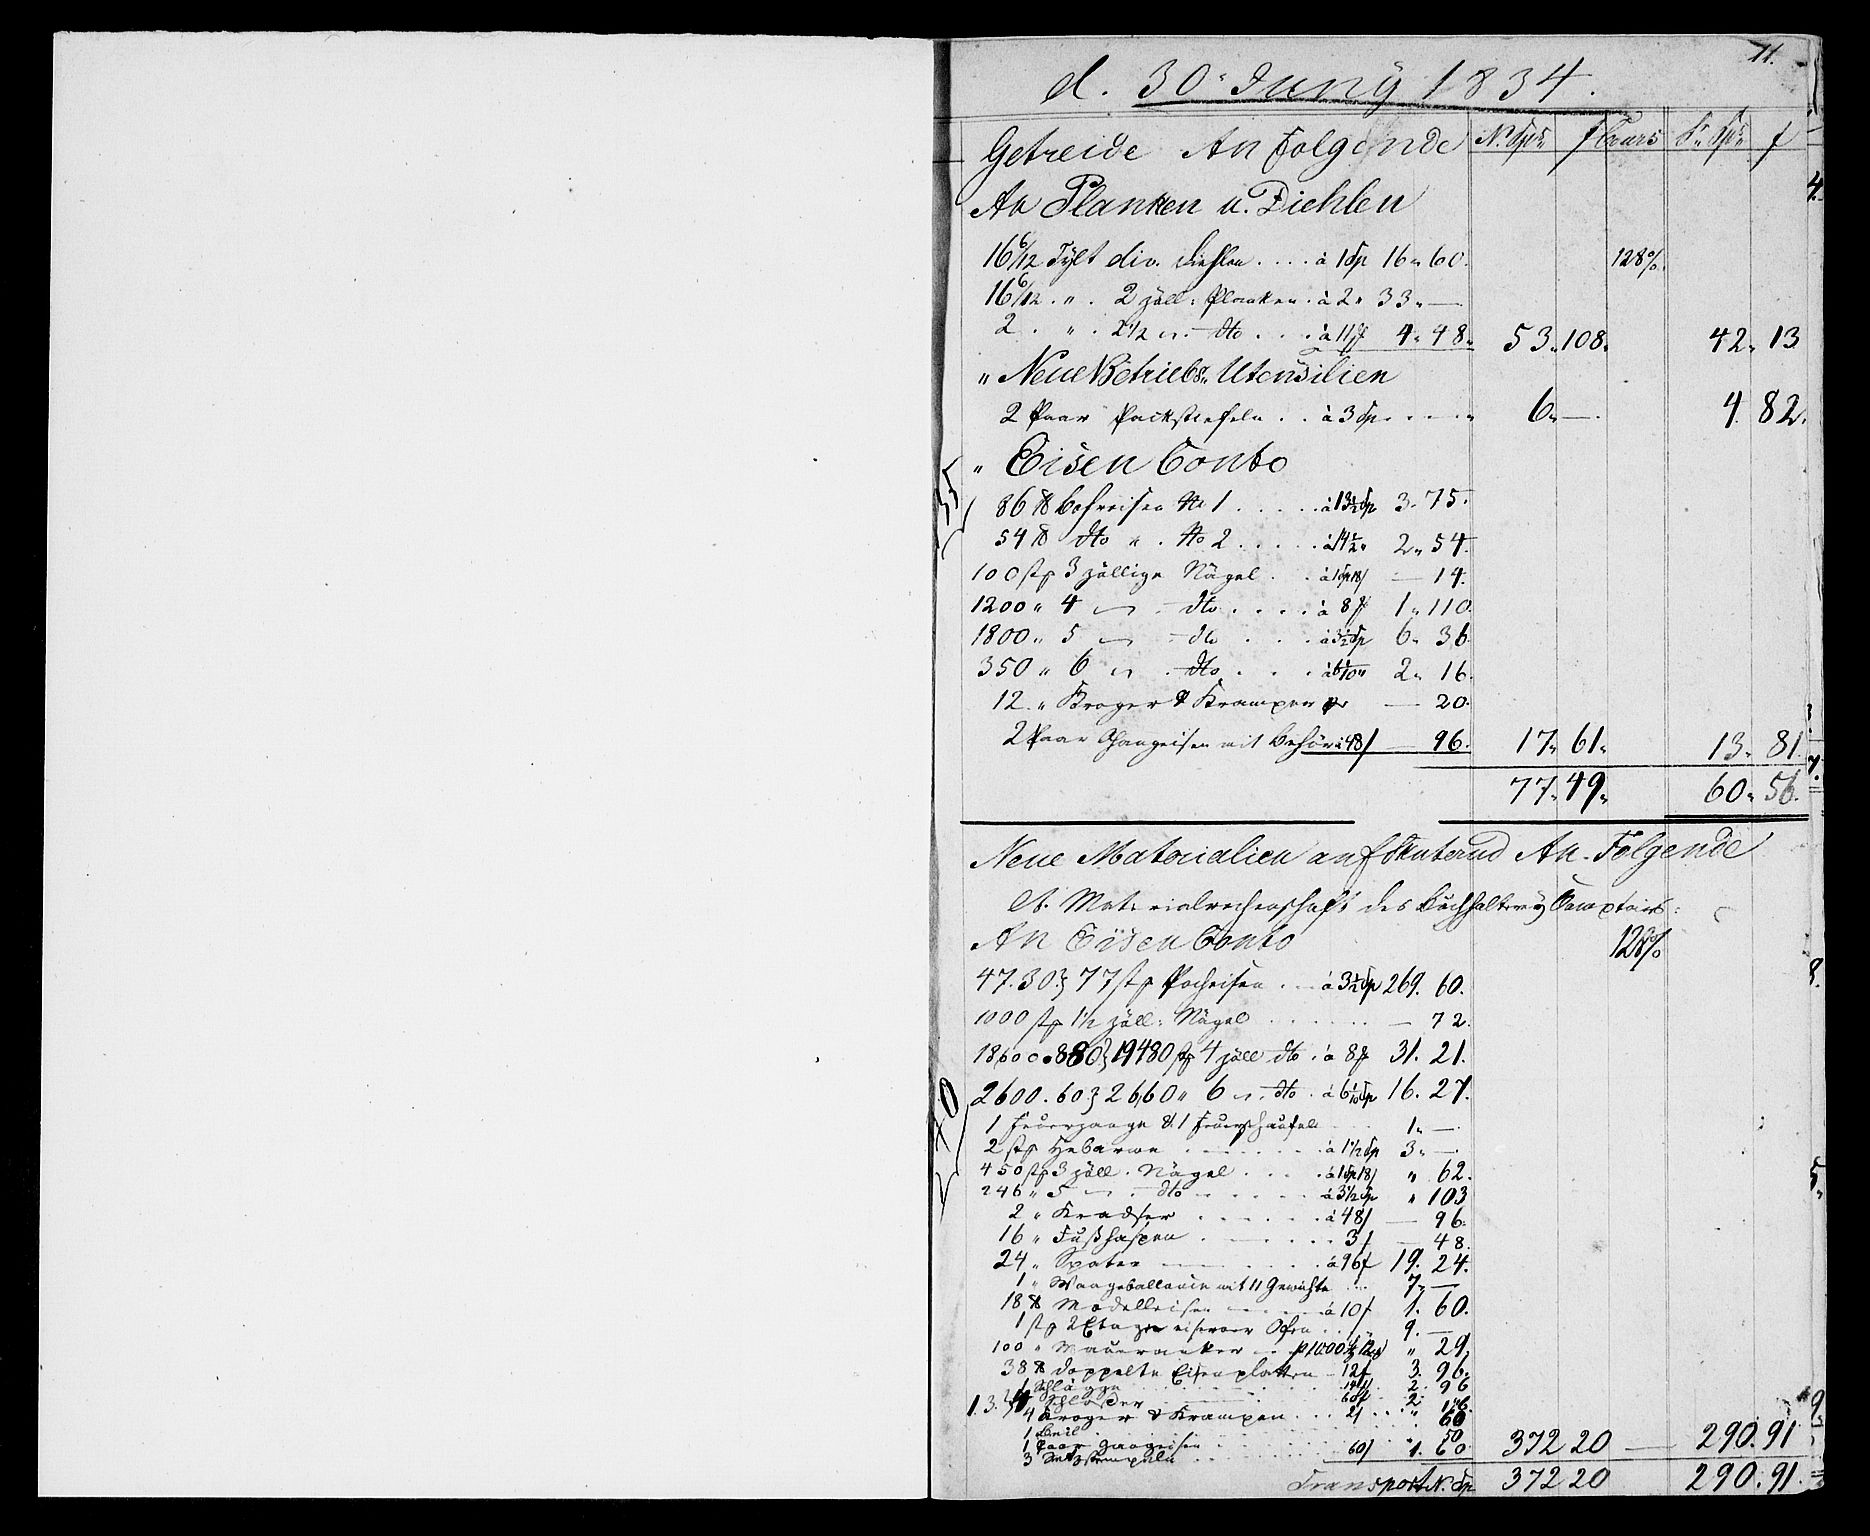 11.
d. 30. Juny 1834.
Getreide An Folgende N. Spr f Cours S. Spr f
An Planken u. Diehlen
16 6/12 Tylt div. Diehlen .... à 1 Sp 16 " 60. 128%
16 6/12 . " . 2 zöll: Planken . à 2 " 33 " —
2 . " . 2 1/2 " dto .... à 11 f 4 " 48 " 53 " 108 " 42 " 13
" Neue Betriebs " Utensilien
2 Paar Packstiefeln .. à 3 Sp .... 6 " — . 4 82.
" Eisen Conto
86 ℔ Bohreisen No 1 ..... à 13 1/2 Sp 3 " 75.
54 ℔ dto " . No 2 ..... 2 " 54.
100 stp 3 zöllige Nägel .. à 1 Sp 18 f — 14.
1200 " 4 " dto .... à 8 f 1 " 110.
1800 " 5 " dto .. à 3 1/2 Sp 6 " 36.
350 " 6 " dto ... à 6 1/10 " 2 " 16.
12 " Kroger & Krampen — 20.
2 Paar Gangeisen mit Behör à 48 f — 96. 17 " 61 " 13 " 81.
77 " 49 " 60 " 56.
Neue Materialien auf Skuterud An Folgende
Materialrechenschaft des Buchhalterey Comptoirs:
An Eisen Conto 128%
47.30.} 77 stp Pocheisen . à 3 1/2 Sp 269. 60.
1000 stp 1 1/2 zöll: Nägel ...... — 72.
18600.880.} 19480 stp 4 zöll dto . à 8 f 31. 21.
2600.60} 2660 " 6 " dto . à 6 1/10 Sp 16. 27.
1 Feuerzange & 1 Feuerschaufel 1 " —
2 stp Hebarme ...... à 1 1/2 Sp 3 " — .
450 stp 3 zöll. Nägel .... à 1 Sp 18 f " 62.
246 " 5 " dto ...... à 3 1/2 Sp " 103
2 " Kradser ...... à 48 f — 96.
16 " Fußhaspen ...... 3 f — 48.
24 " Spater ...... à 96 f 19. 24.
1 " Waageballance mit 11 Gewichte ... 7 " —
18 ℔ Modelleisen ..... à 10 f 1. 60.
1 stp 2 Etagen eiserner Ofen ... 9. —
100 " Maueranker .. " 29.
38 ℔ doppelte Eisenplatten — 12 f 3. 96.
1 Schlägge 2. 96
1.3.} 4 Schlösser 60 f 2.
4 Kroger & Krampen ... 2 f ... " 
1 Beil ...... 
1 Paar Gangeisen ...... 50
3 ...... 60 f 1. 60. 372 20 — 290. 91
Transport N. Sp 372 20 290. 91.